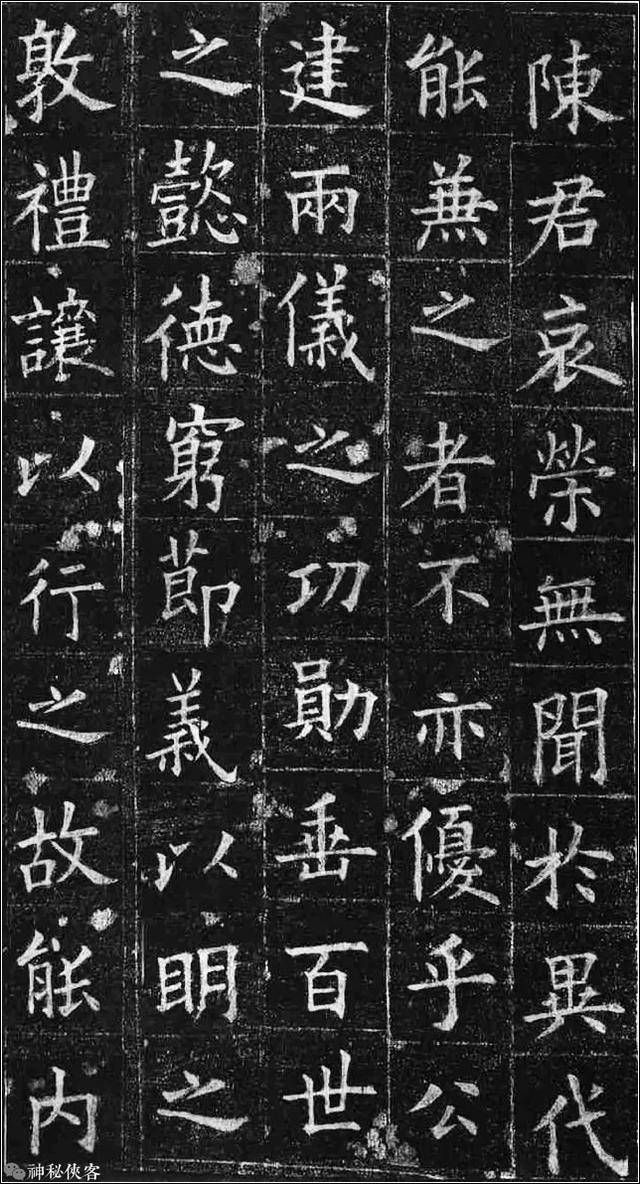 陳君哀榮無聞於異代
能兼之者不亦優乎公
建兩儀之功勛垂百世
之懿德窮節義以明之
敦禮讓以行之故能内
神秘俠客